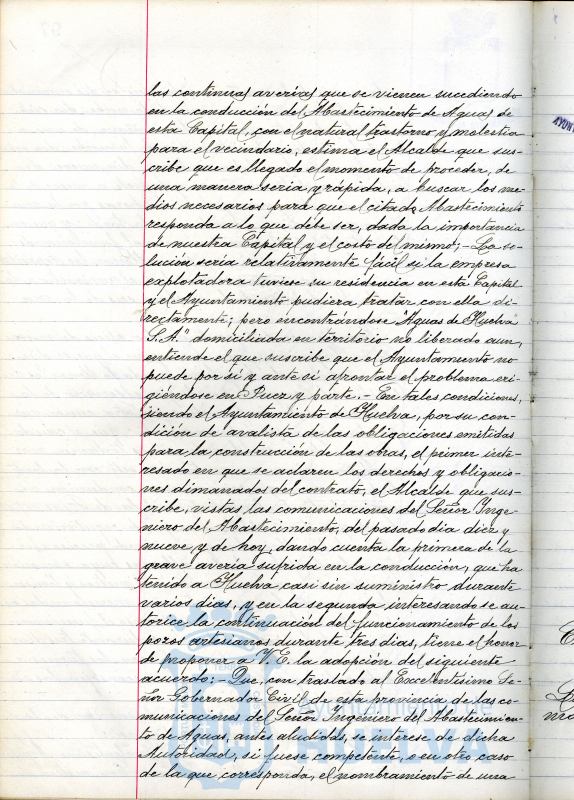 las continuas averías que se vienen sucediendo
en la conducción del Abastecimiento de Aguas de
esta Capital, con el natural trastorno y molestia
para el vecindario, estima el Alcalde que sus-
cribe que es llegado el momento de proceder, de
una manera seria y rápida, a buscar los me-
dios necesarios para que el citado Abastecimiento
responda a lo que debe ser, dada la importancia
de nuestra Capital y el costo del mismo; - La so-
lución sería relativamente fácil si la empresa
explotadora tuviese su residencia en esta Capital
y el Ayuntamiento pudiera tratar con ella di-
rectamente; pero encontrándose "Aguas de Huelva
S.A." domiciliada en territorio no liberado aun,
entiende el que suscribe que el Ayuntamiento no
puede por sí y ante sí afrontar el problema eri-
giéndose en Juez y parte. - En tales condiciones,
siendo el Ayuntamiento de Huelva, por su con-
dición de avalista de las obligaciones emitidas
para la construcción de las obras, el primer inte-
resado en que se aclaren los derechos y obligacio-
nes dimanados del contrato, el Alcalde que sus-
cribe, vistas las comunicaciones del Señor Inge-
niero del Abastecimiento, del pasado dia diez y
nueve y de hoy, dando cuenta la primera de la
grave avería sufrida en la conducción, que ha
tenido a Huelva casi sin suministro durante
varios dias, y en la segunda interesando se au-
torice la continuación del funcionamiento de los
pozos artesianos durante tres dias, tiene el honor
de proponer a V. E. la adopción del siguiente
acuerdo: - Que, con traslado al Excelentísimo Se-
ñor Gobernador Civil de esta provincia de las co-
municaciones del Señor Ingeniero del Abastecimien-
to de Aguas, antes aludidas, se interese de dicha
Autoridad, si fuese competente, o en otro caso
de la que corresponda, el nombramiento de una
HUELVA